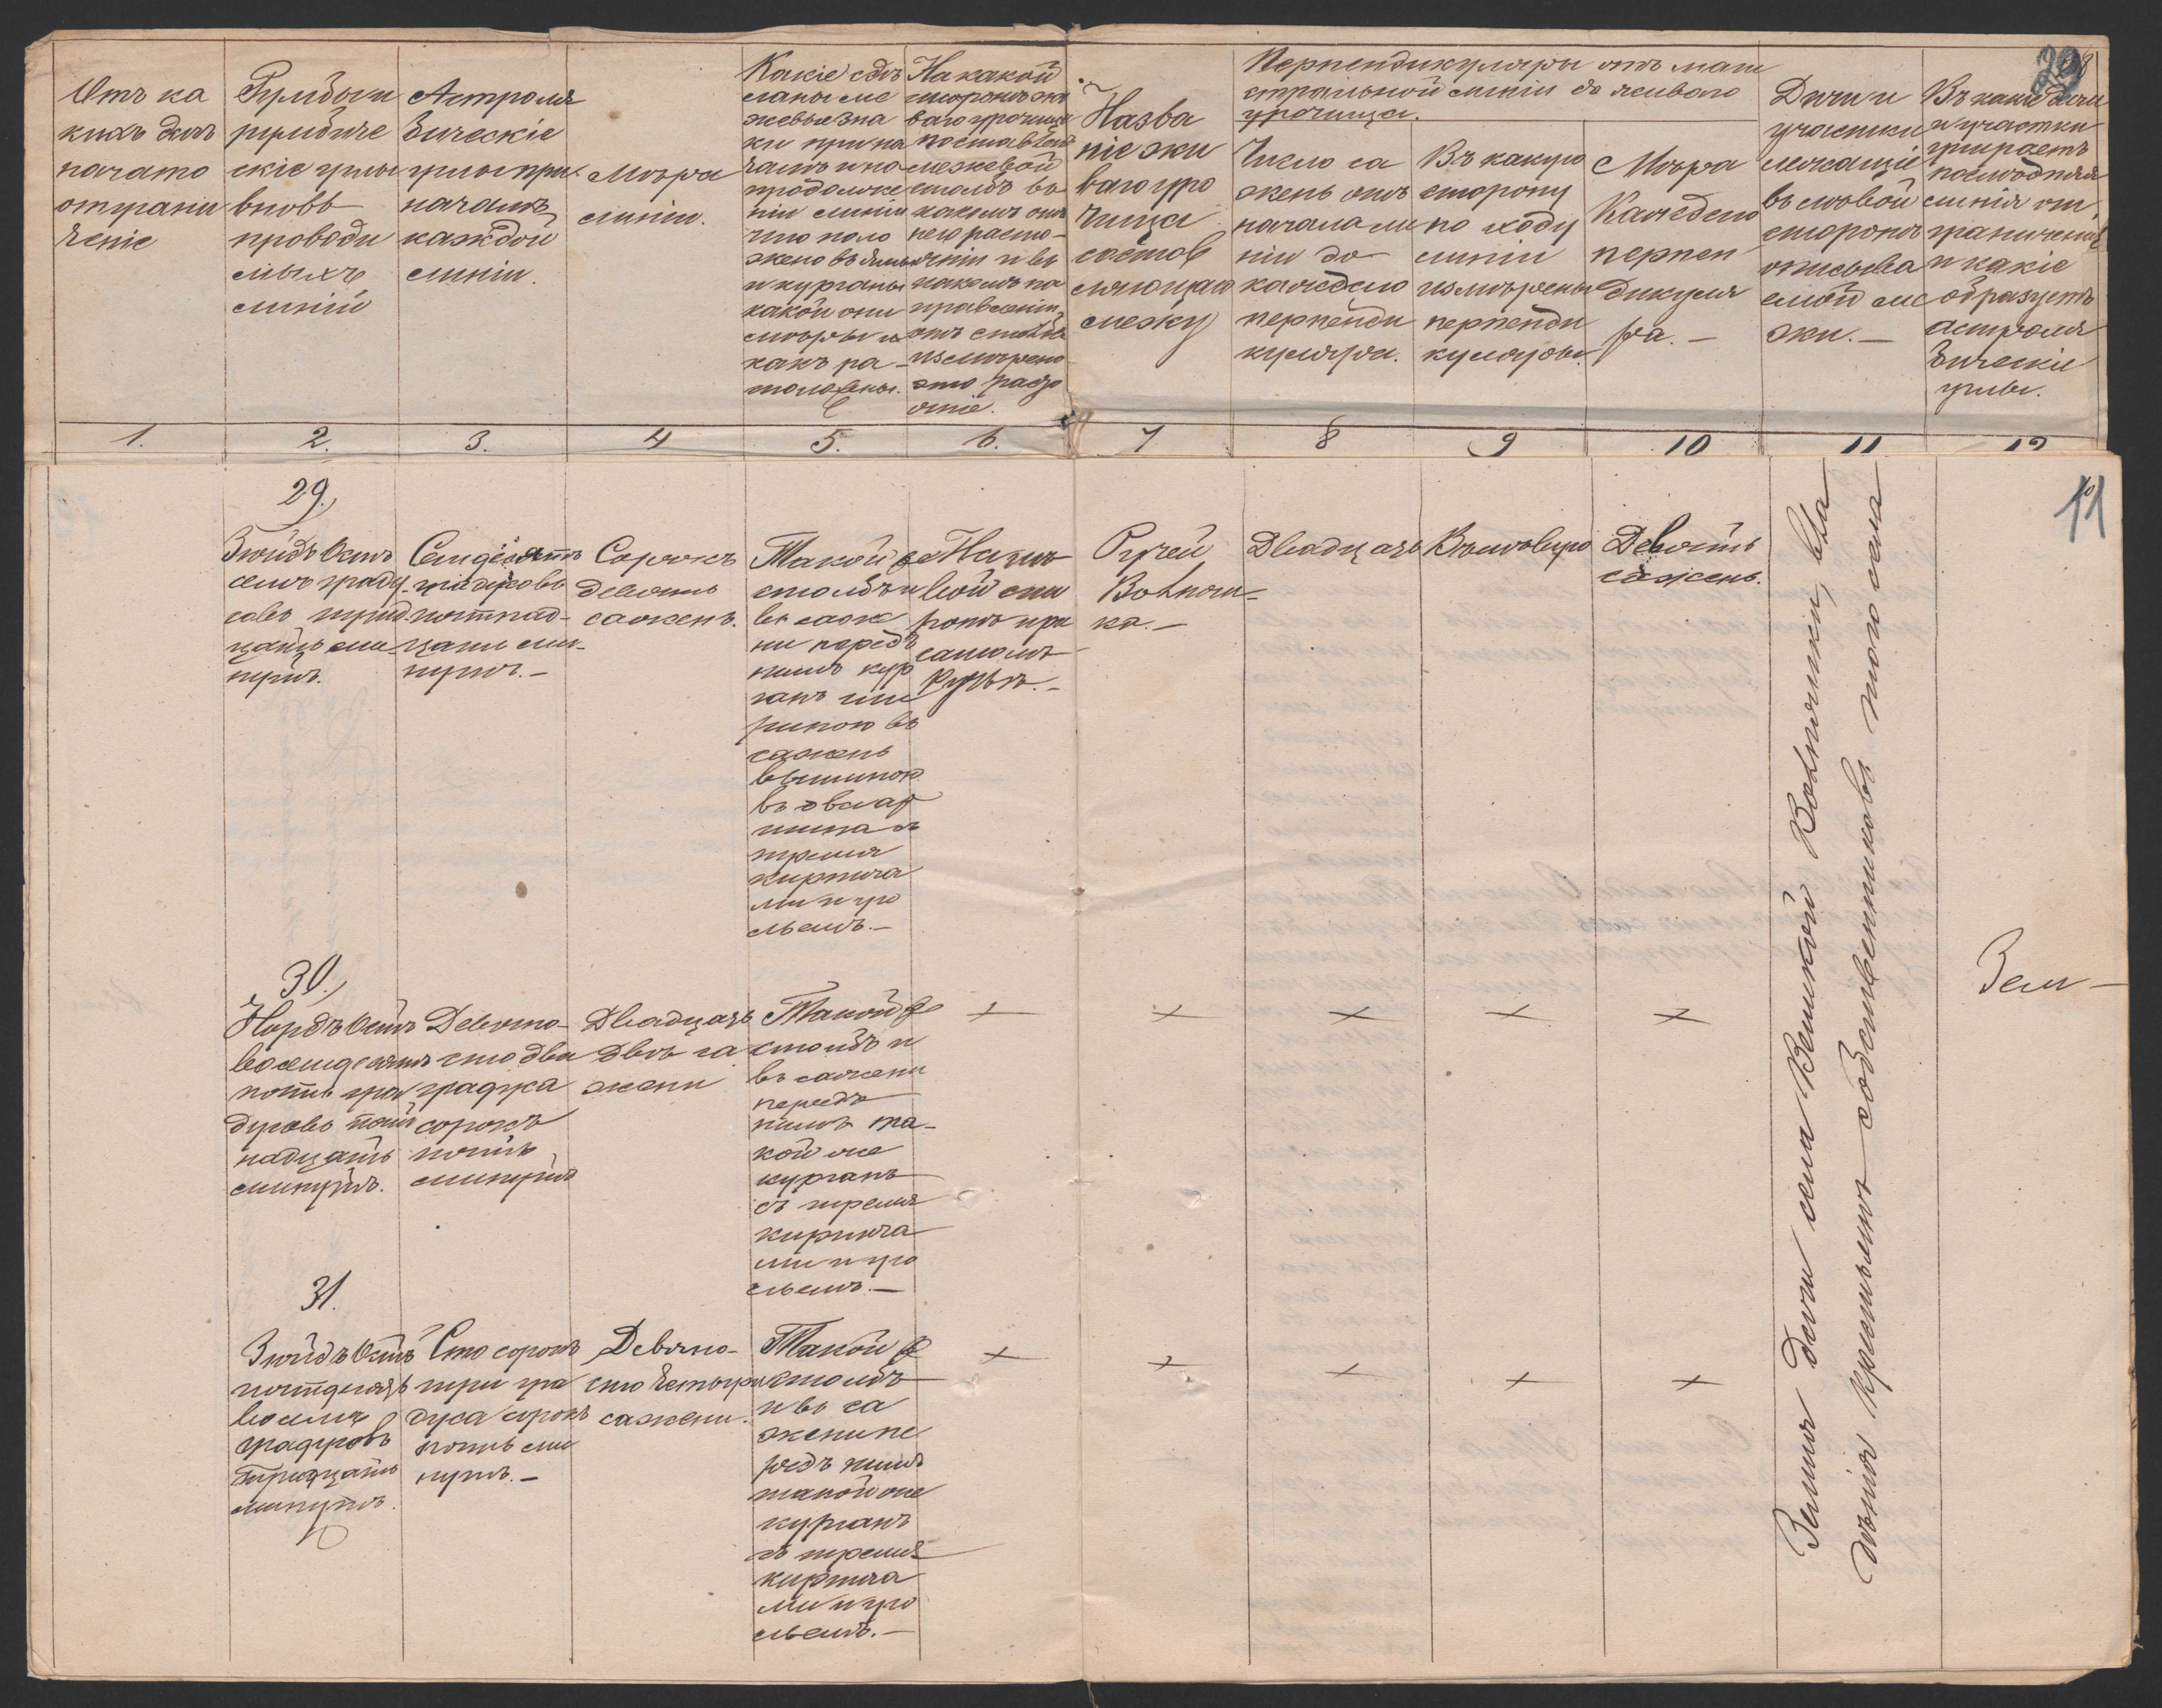 Отъ ка
кихъ дачъ
начато
отграни
ченіе
Румбы и
румбиче
скіе углы
вновь
проводи
мыхъ
линій
Астроля
бическіе
углы при
началѣ
каждой
линіи.
Мѣра
линіи.
Какіе сдѣ
ланы ме
жевые зна
ки при на
чалѣ и по
продолже
ніи линіи
что поло
жено въ ямы
и курганы
какой они
мѣры и
какъ ра-
сположены.
На какой
сторонѣ жи
ваго урочища
поставленъ
межевой
столбъ въ
какомъ отъ
него разсто-
яніи и въ
какомъ на
правленіи
отъ столба
измѣрено
это разсто
яніе.
Назва
ніе жи
ваго уро
чища
состав
ляющаго
межу
Перпендикуляры отъ маги
стральной линіи до живаго
урочища.
Число са
жень отъ
начала ли
ніи до
каждаго
перпенди
куляра.
Въ какую
сторону
по ходу
линіи
измѣрены
перпенди
куляры.
Мѣра
каждаго
перпен
дикуля
ра.—
Дачи и
участки
лежащіе
въ лѣвой
сторонѣ
описыва
емой ме
жи.—
Въ какіе дачи
и участки
упираетъ
послѣдняя
линія от
граниченія
и какіе
образуетъ
астроля
бическіе
углы.
1. 2. 3. 4 5. 6. 7 8 9 10 11 12
11
29.
Зюйдъ Остъ
семь граду-
совъ трид
цать ми-
нутъ.
Семдесятъ
градусовъ
пятнад-
цать ми-
нутъ.—
Сорокъ
девять
сажень.
Такой же
столбъ и
въ саже
ни передъ
нимъ кур
ганъ ши
риною въ
сажень
вышиною
въ два ар
шина съ
тремя
кирпича
ми и уго
льемъ.—
На лѣ
вой сто
ронѣ при
самомъ
Ручьѣ.—
Ручей
Вотнош-
ка.—
Двадцать
Въ лѣвую
Девять
сажень.
30.
Нордъ Остъ
восемдесятъ
пять гра
дусовъ пят
надцать
минутъ.
Девяно-
сто два
градуса
сорокъ
пять
минутъ
Двадцать
двѣ са
жени
Такой же
столбъ и
въ сажени
передъ
нимъ та-
кой же
курганъ
съ тремя
кирпича
ми и уго
льемъ.—
+ + + + +
31.
Зюйдъ Остъ
пятдесятъ
восемь
градусовъ
тридцать
минутъ.
Сто сорокъ
три гра
дуса сорокъ
пять ми
нутъ.—
Девяно-
сто четыре
сажени.
Такой же
столбъ
и въ са
жени пе
редъ нимъ
такой же
курганъ
съ тремя
кирпича
ми и уго
льемъ.—
+ + + + +
Земля дачи села Великой
нія крестьянъ собственниковъ того села
Зем-